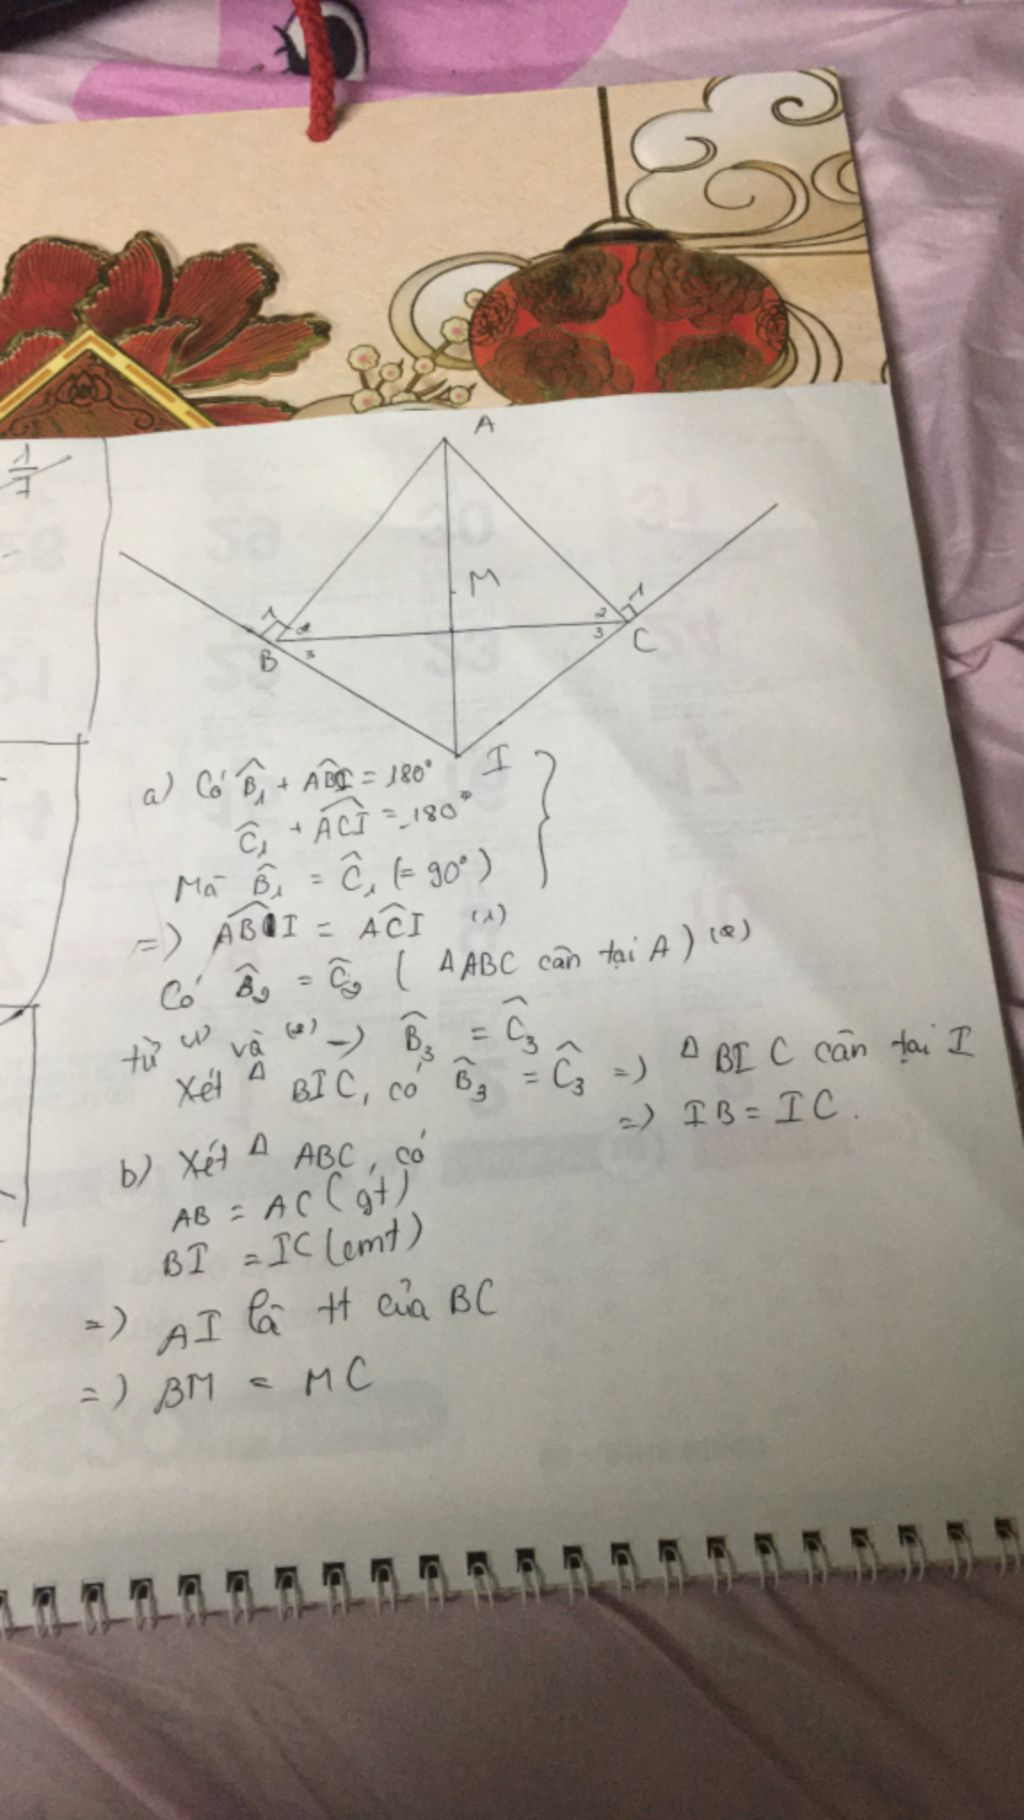 A
M
1 2 2 1
B 3 3 C
I
a) Có B̂₁ + ABI = 180°
Ĉ₁ + ACI = 180°
Mà B̂₁ = Ĉ₁ (= 90°)
=> ABI = ACI (1)
Có B̂₂ = Ĉ₂ ( Δ ABC cân tại A ) (2)
từ (1) và (2) -> B̂₃ = Ĉ₃
Xét Δ BIC, có B̂₃ = Ĉ₃ => Δ BIC cân tại I
=> IB = IC.
b) Xét Δ ABC, có
AB = AC (gt)
BI = IC (cmt)
=> AI là tt của BC
=> BM = MC